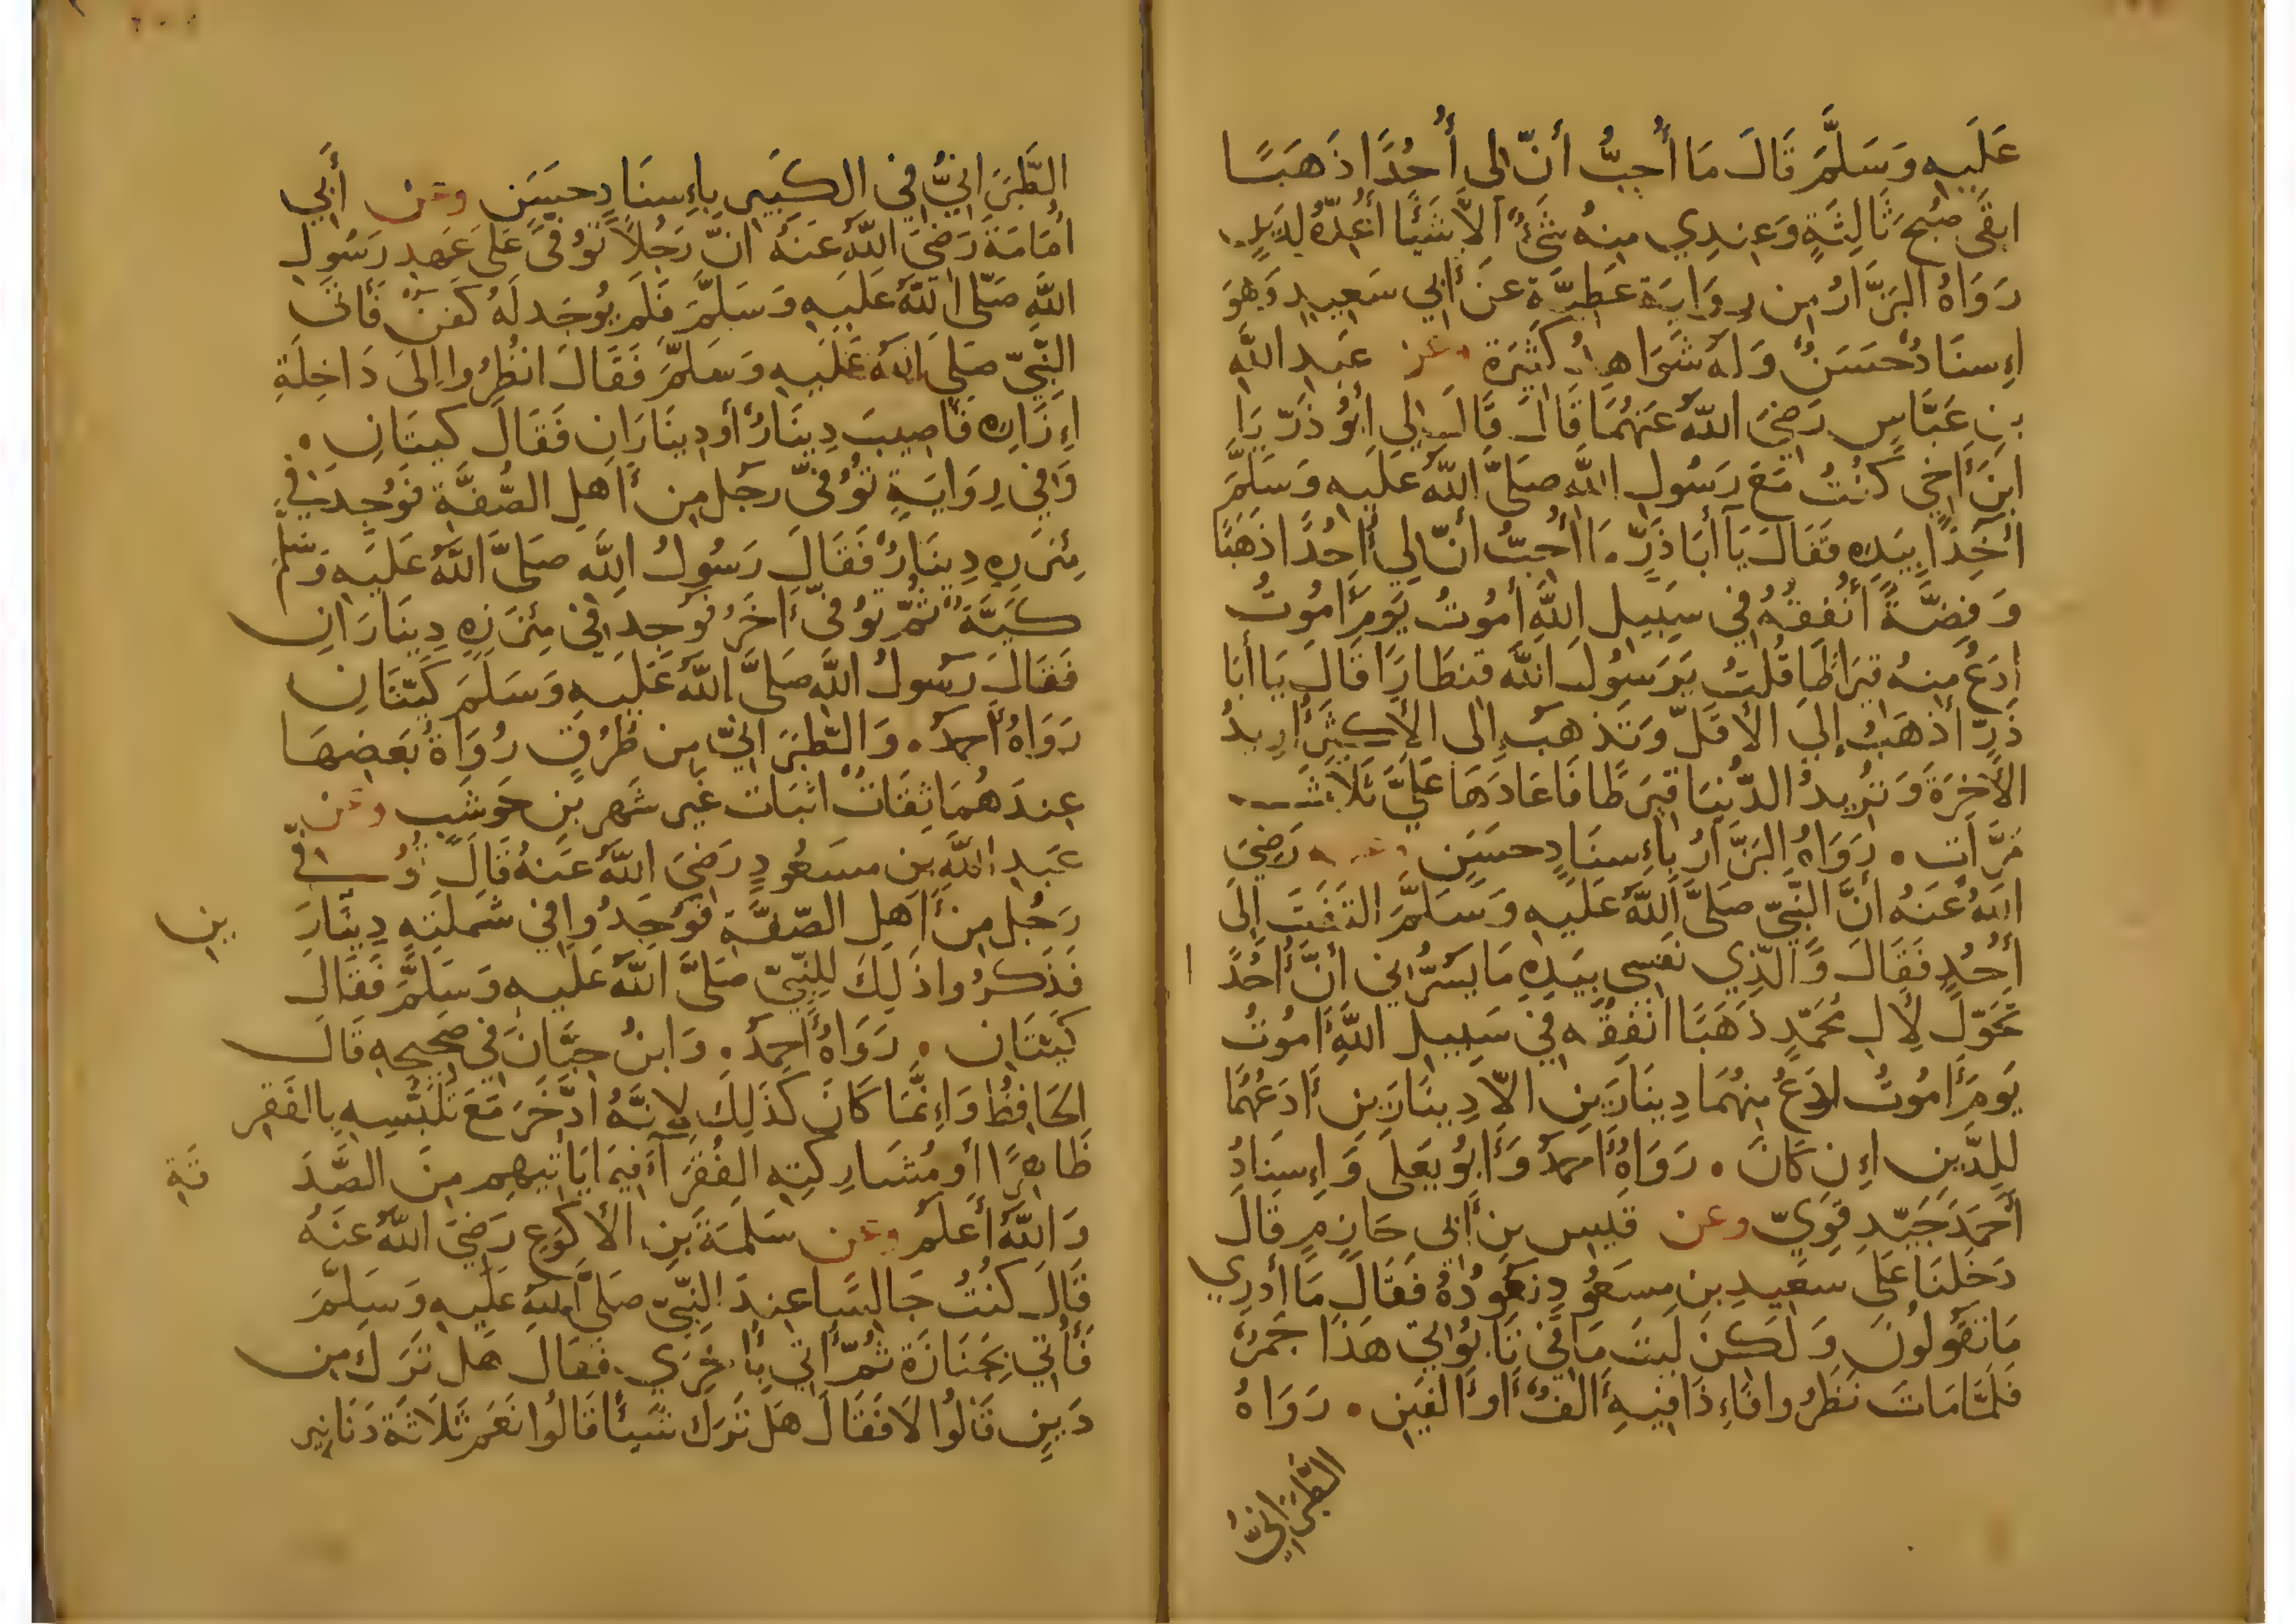 عَلَيْهِ وَسَلَّمَ قَالَ مَا أُحِبُّ أَنَّ لِي أُحُدًا ذَهَبًا
ابْقَى صُبْحَ ثَالِثَةٍ وَعِنْدِي مِنْهُ شَيْءٌ اِلَّا شَيْئًا أُعِدُّهُ لِدَيْنٍ
رَوَاهُ البَزَّارُ مِن رِوَايَةِ عَطِيَّةَ عَنْ أَبِي سَعِيدٍ وَهُوَ
إِسنَادٌ حَسَنٌ وَلَهُ شَوَاهِدُ كَثِيرَة وعن عَبدِ اللَّهِ
بنِ عَبَّاسٍ رَضِيَ اللَّهُ عَنهُمَا قَالَ قَالَ لِي أَبُو ذَرٍّ يَا
ابنَ أَخِي كُنتُ مَعَ رَسُولِ اللَّهِ صَلَّى اللَّهُ عَلَيهِ وَسَلَّمَ
آخِذًا بِيَدِهِ فَقَالَ يَا أَبَا ذَرٍّ مَا أُحِبُّ أَنَّ لِي أُحُدًا ذَهَبًا
وَفِضَّةً أُنفِقُهُ فِي سَبِيلِ اللَّهِ أَمُوتُ يَومَ أَمُوتُ
أَدَعُ مِنهُ قِيرَاطًا قُلتُ يَرَسُولَ اللَّهِ قِنطَارًا قَالَ يَا أَبَا
ذَرٍّ أَذهَبُ إِلَى الأَقَلِّ وَتَذهَبُ إِلَى الأَكثَرِ أُرِيدُ
الآخِرَةَ وَتُرِيدُ الدُّنيَا قِيرَطًا فَاعَادَهَا عَلَيَّ ثَلَاثَ
مَرَّاتٍ . رَوَاهُ البَزَّارُ بِإِسنَادٍ حَسَنٍ وعنه رَضِيَ
اللَّهُ عَنهُ أَنَّ النَّبِيَّ صَلَّى اللَّهُ عَلَيهِ وَسَلَّمَ التَفَتَ إِلَى
أُحُدٍ فَقَالَ وَالَّذِي نَفسِي بِيَدِهِ مَا يَسُرُّنِي أَنَّ أُحُدًا
تَحَوَّلَ لِآلِ مُحَمَّدٍ ذَهَبًا انفِقُهُ فِي سَبِيلِ اللَّهِ أَمُوتُ
يَومَ أَمُوتُ ادَعُ مِنهُمَا دِينَارَينِ الَّا دِينَارَينِ أَدَعُهُمَا
لِلدَّينِ إِن كَانَ . رَوَاهُ أَحمَدُ وَأَبُو يَعلَى وَإِسنَادُ
أَحمَدَ جَيِّدٌ قَوِيٌّ وعن قَيسِ بنِ أَبِي حَازِمٍ قَالَ
دَخَلنَا عَلَى سَعِيدِ بنِ مَسعُودٍ نَعُودُهُ فَقَالَ مَا أَدرِي
مَا تَقُولُونَ وَلَكِن لَيتَ مَا فِي تَابُوتِي هَذَا جَمرٌ
فَلَمَّا مَاتَ نَظَرُوا فَإِذَا فِيهِ أَلفٌ أَو أَلفَينِ . رَوَاهُ
الطَّبَرَانِيُّ
الطَّبَرَانِيُّ فِي الكَبِيرِ بِإِسنَادٍ حَسَنٍ وعن أَبِي
أُمَامَةَ رَضِيَ اللَّهُ عَنهُ انَّ رَجُلًا تُوُفِّيَ عَلَى عَهدِ رَسُولِ
اللَّهِ صَلَّى اللَّهُ عَلَيهِ وَسَلَّمَ فَلَم يُوجَد لَهُ كَفَنٌ فَأَتَى
النَّبِيَّ صَلَّى اللَّهُ عَلَيهِ وَسَلَّمَ فَقَالَ انظُرُوا إِلَى دَاخِلَةِ
إِزَارِهِ فَاصِيبَ دِينَارٌ أَو دِينَارَانِ فَقَالَ كَيتَانِ .
وَفِي رِوَايَةٍ تُوُفِّيَ رَجُل مِن أَهلِ الصُّفَّةِ فَوُجِدَ فِي
مِئزَرِهِ دِينَارٌ فَقَالَ رَسُولُ اللَّهِ صَلَّى اللَّهُ عَلَيهِ وَسَلَّمَ
كَيَّةٌ ثُمَّ تُوُفِّيَ أَخَرُ فَوُجِدَ فِي مِئزَرِهِ دِينَارَانِ
فَقَالَ رَسُولُ اللَّهِ صَلَّى اللَّهُ عَلَيهِ وَسَلَّمَ كَيَّتَانِ
رَوَاهُ أَحمَدُ . وَالطَّبَرَانِيُّ مِن طُرُقٍ رُوَاةُ بَعضِهَا
عِندَهُمَا ثِقَاتٌ اثبَات غَيرَ شَهرِ بنِ حَوشَبٍ وعن
عَبدِ اللَّهِ بنِ مَسعُودٍ رَضِيَ اللَّهُ عَنهُ قَالَ تُوُفِّيَ
رَجُل مِن أَهلِ الصُّفَّةِ فَوَجَدُوا فِي شَملَتِهِ دِينَارَ ين
فَذَكَرُوا ذَلِكَ لِلنَّبِيِّ صَلَّى اللَّهُ عَلَيهِ وَسَلَّمَ فَقَالَ
كَيَّتَانِ . رَوَاهُ أَحمَدُ . وَابنُ حِبَّانَ فِي صَحِيحِهِ قَالَ
الحَافِظُ وَإِنَّمَا كَانَ كَذَلِكَ لِانَّهُ ادَّخَرَ مَعَ تَلَبُّسِهِ بِالفَقرِ
ظَاهِرًا أَو مُشَارِكَتِهِ الفُقَرَآءَ فِيمَا يَاتِيهِم مِنَ الصَّدَ قَةِ
وَاللَّهُ أَعلَم وعن سَلَمَةَ بنِ الأَكوَعِ رَضِيَ اللَّهُ عَنهُ
قَالَ كُنتُ جَالِسًا عِندَ النَّبِيِّ صَلَّى اللَّهُ عَلَيهِ وَسَلَّمَ
فَأُتِيَ بِجَنَازَة ثُمَّ أُتِيَ بِأُخرَي فَقَالَ هَل تَرَكَ مِن
دَينٍ قَالُوا لَا فَقَالَ هَل تَرَكَ شَيئًا قَالُوا نَعَم ثَلَاثَةَ دَنَانِير